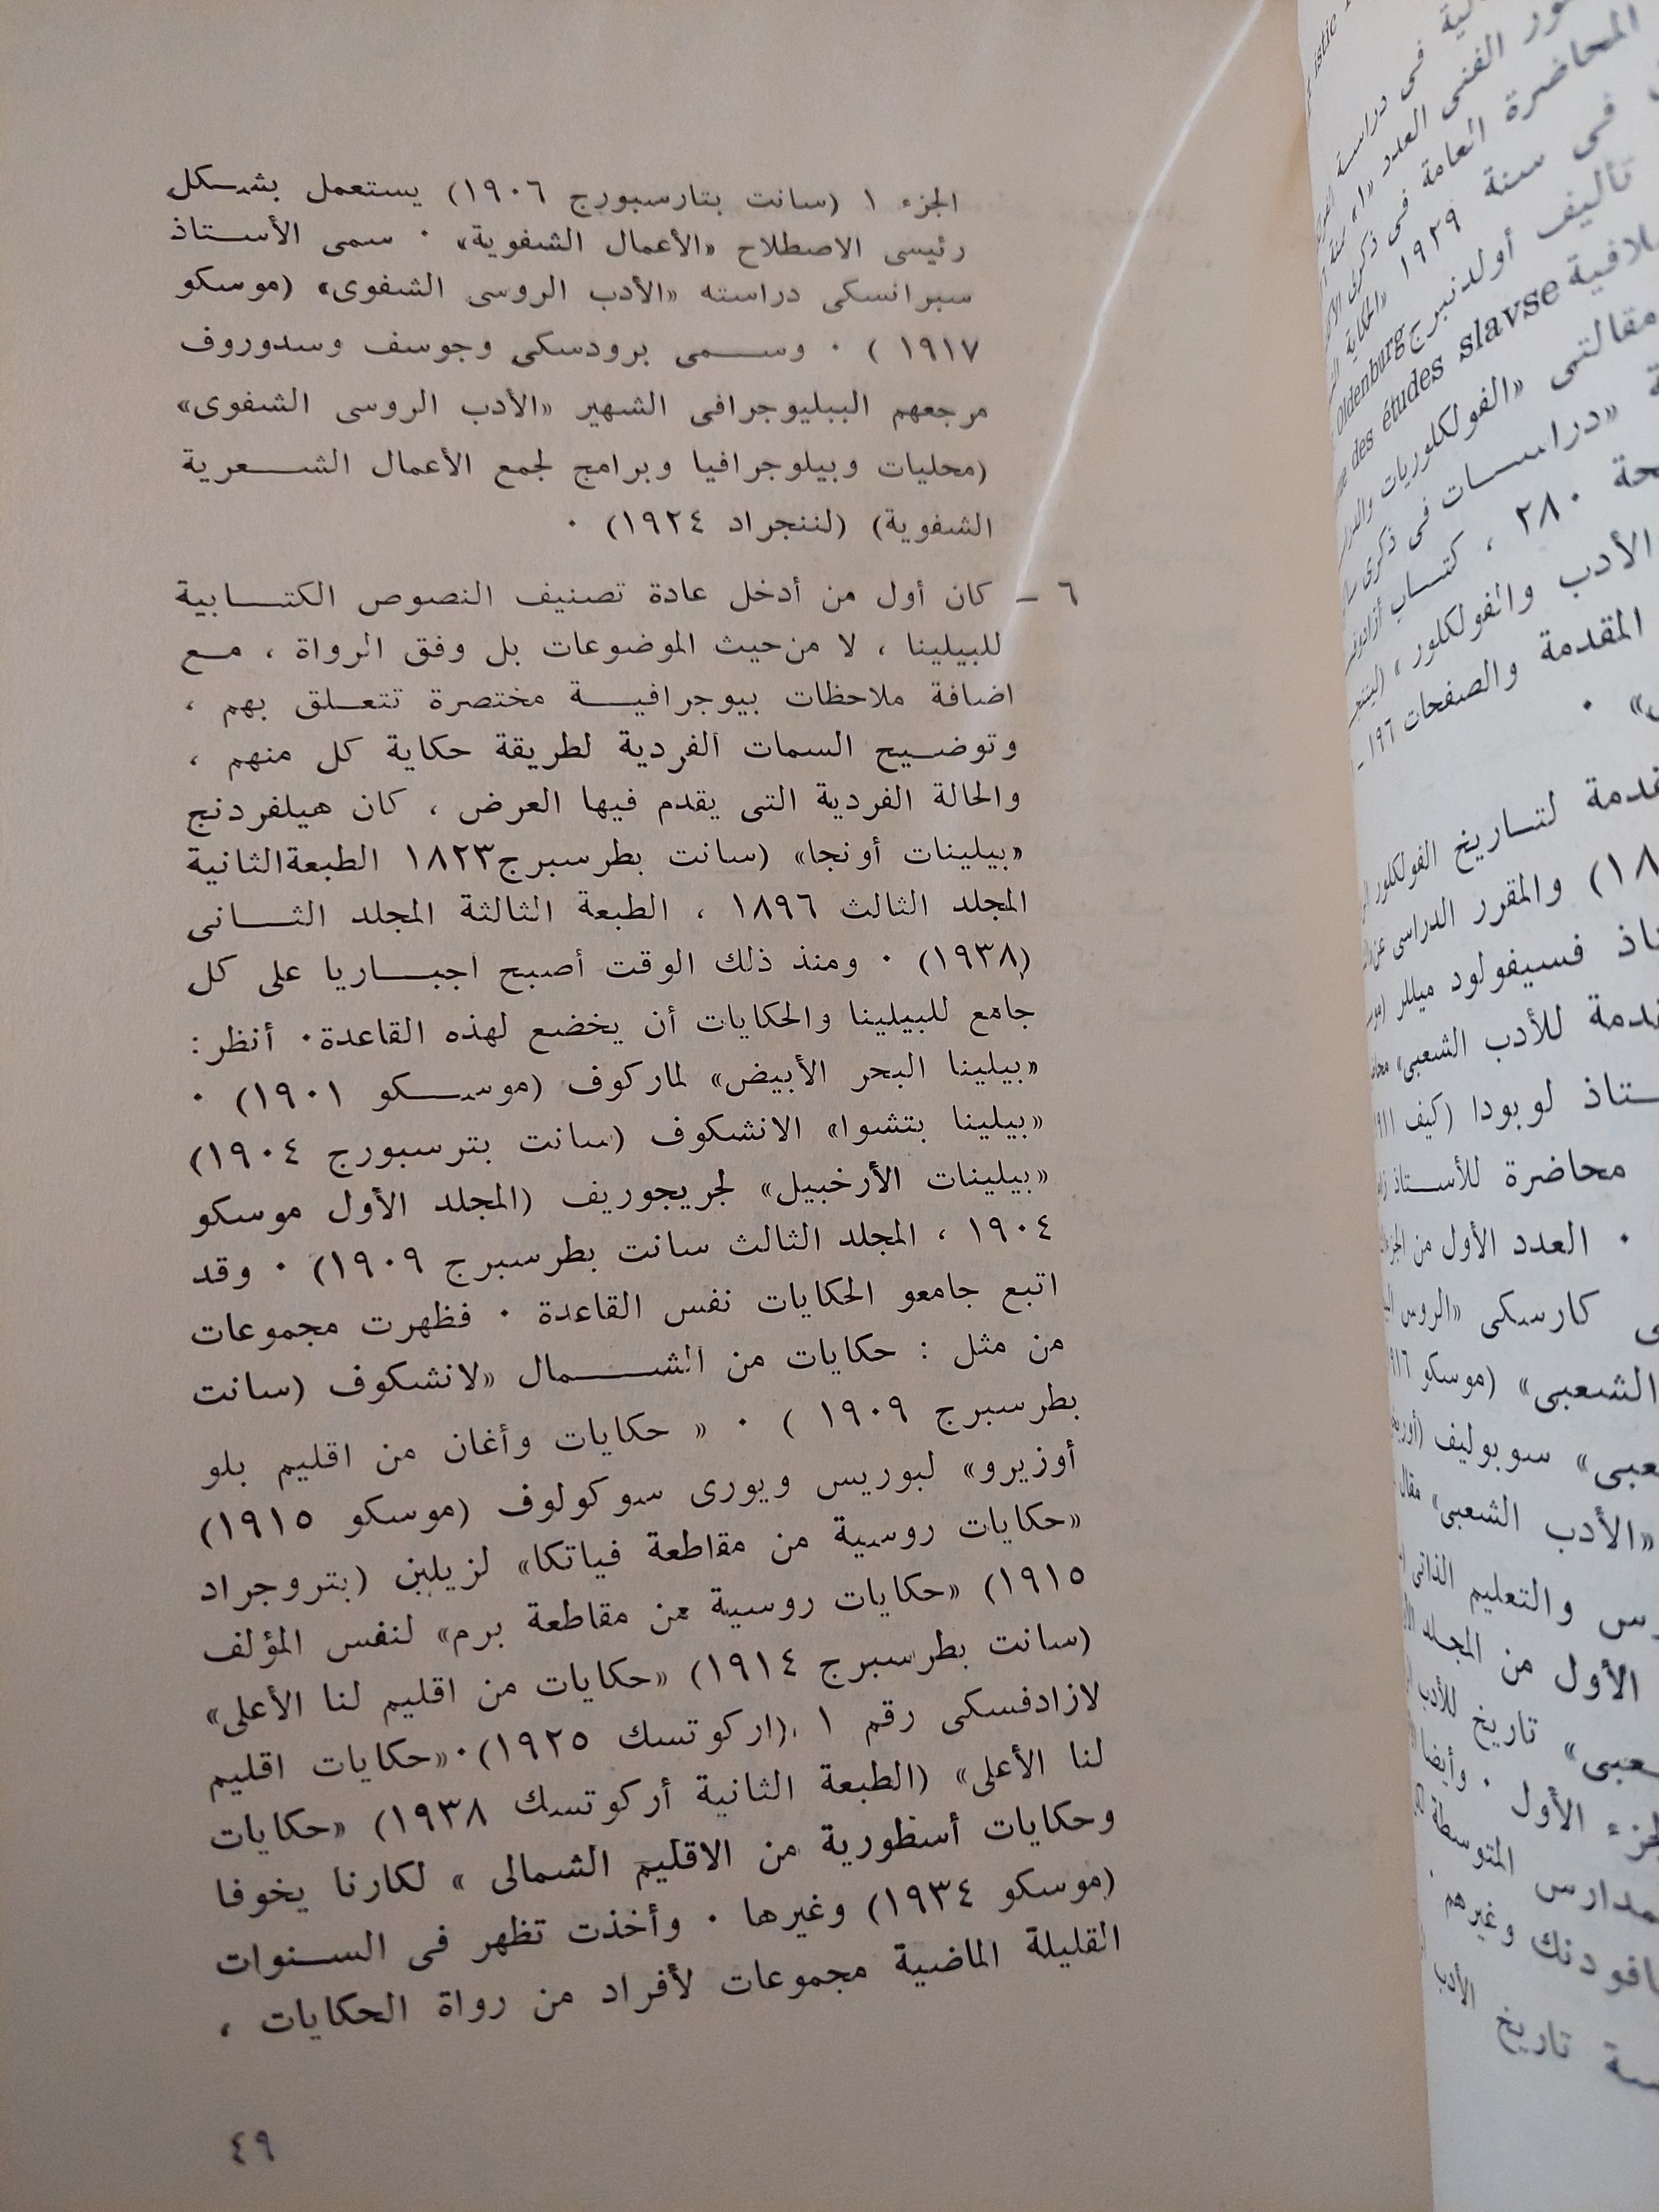 الجزء ١ (سانت بتارسبورج ١٩٠٦) يستعمل بشكل
رئيسى الاصطلاح «الأعمال الشفوية» ٠ سمى الأستاذ
سبرانسكى دراسته «الأدب الروسى الشفوى» (موسكو
١٩١٧ ) ٠ وسمى برودسكى وجوسف وسدوروف
مرجعهم الببليوجرافى الشهير «الأدب الروسى الشفوى»
(محليات وبيلوجرافيا وبرامج لجمع الأعمال الشعرية
الشفوية) (لننجراد ١٩٢٤) ٠
٦ – كان أول من أدخل عادة تصنيف النصوص الكتابية
للبيلينا ، لا من حيث الموضوعات بل وفق الرواة ، مع
اضافة ملاحظات بيوجرافية مختصرة تتعلق بهم ،
وتوضيح السمات الفردية لطريقة حكاية كل منهم ،
والحالة الفردية التى يقدم فيها العرض ، كان هيلفردنج
«بيلينات أونجا» (سانت بطرسبرج ١٨٢٣ الطبعة الثانية
المجلد الثالث ١٨٩٦ ، الطبعة الثالثة المجلد الثانى
(١٩٣٨) ٠ ومنذ ذلك الوقت أصبح اجباريا على كل
جامع للبيلينا والحكايات أن يخضع لهذه القاعدة٠ أنظر :
«بيلينا البحر الأبيض» لماركوف (موسكو ١٩٠١) ٠
«بيلينا بتشوا» الانشكوف (سانت بترسبورج ١٩٠٤)
«بيلينات الأرخبيل» لجريجوريف (المجلد الأول موسكو
١٩٠٤ ، المجلد الثالث سانت بطرسبرج ١٩٠٩) ٠ وقد
اتبع جامعو الحكايات نفس القاعدة ٠ فظهرت مجموعات
من مثل : حكايات من الشمال «لانشكوف (سانت
بطرسبرج ١٩٠٩ ) ٠ « حكايات وأغان من اقليم بلو
أوزيرو» لبوريس ويورى سوكولوف (موسكو ١٩١٥)
«حكايات روسية من مقاطعة فياتكا» لزيلين (بتروجراد
١٩١٥) «حكايات روسية من مقاطعة برم» لنفس المؤلف
(سانت بطرسبرج ١٩١٤) «حكايات من اقليم لنا الأعلى»
لازادفسكى رقم ١ (اركوتسك ١٩٢٥)٠«حكايات اقليم
لنا الأعلى» (الطبعة الثانية أركوتسك ١٩٣٨) «حكايات
وحكايات أسطورية من الاقليم الشمالى » لكارنا يخوفا
(موسكو ١٩٣٤) وغيرها ٠ وأخذت تظهر فى السنوات
القليلة الماضية مجموعات لأفراد من رواة الحكايات ،
٤٩
فى دراسة
الفنى العدد «١» سنة
المحاضرة العامة فى ذكرى
فى سنة ١٩٢٩ «الحكاية
تأليف أولدنبرج Oldenburg
des études slavse
مقالتى «الفولكلوريات
«دراسات فى ذكرى
٢٨٠ ، كتاب
الأدب والفولكلور ،
المقدمة والصفحات ١٩٦ –
لتاريخ الفولكلور
والمقرر الدراسى
فسيفولود ميللر
للأدب الشعبى»
لوبودا (كيف
محاضرة للأستاذ
٠ العدد الأول من
كارسكى «الروس
الشعبى» (موسكو
سوبوليف
«الأدب الشعبى» مقال
والتعليم الذاتى
الأول من المجلد
تاريخ للأدب
الأول ٠ وأيضا
المتوسطة
وغيرهم ٠
تاريخ الأدب